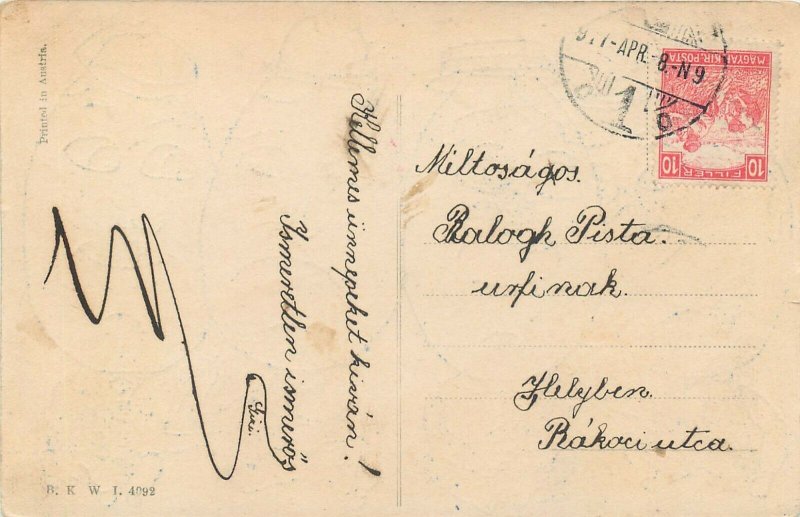 Printed in Austria.
Kellemes ünnepeket kíván!
Ismeretlen ismerős
B. K. W. I. 4092
917-APR.-8.-N9
1
MAGYAR KIR. POSTA
FILLÉR
10 10
Méltoságos.
Balogh Pista.
urfinak.
Helyben.
Rákoci utca.